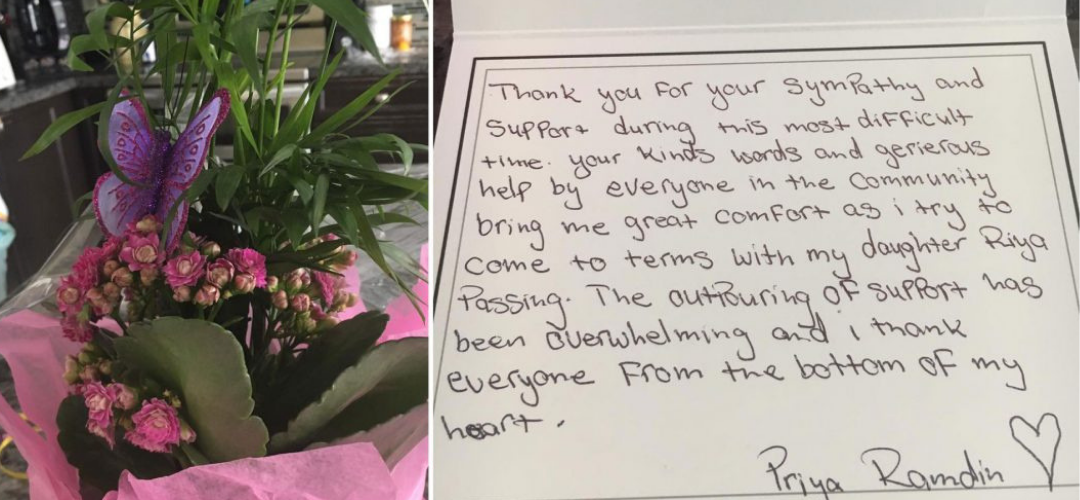 Thank you For your Sympathy and
Support during this most difficult
time. your kinds words and generous
help by everyone in the Community
bring me great comfort as i try to
come to terms with my daughter Riya
Passing. The outpouring of support has
been overwhelming and i thank
everyone From the bottom of my
heart.
Priya Ramdin